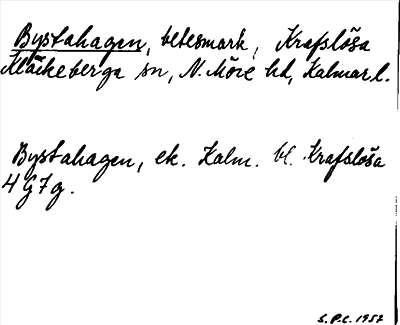 Bystahagen, betesmark, Krafslösa
Kläckeberga sn, N. Möre hd, Kalmar l.
Bystahagen, ek. Kalm. bl. Krafslösa
4 G 7 g.
S.P.C. 1957